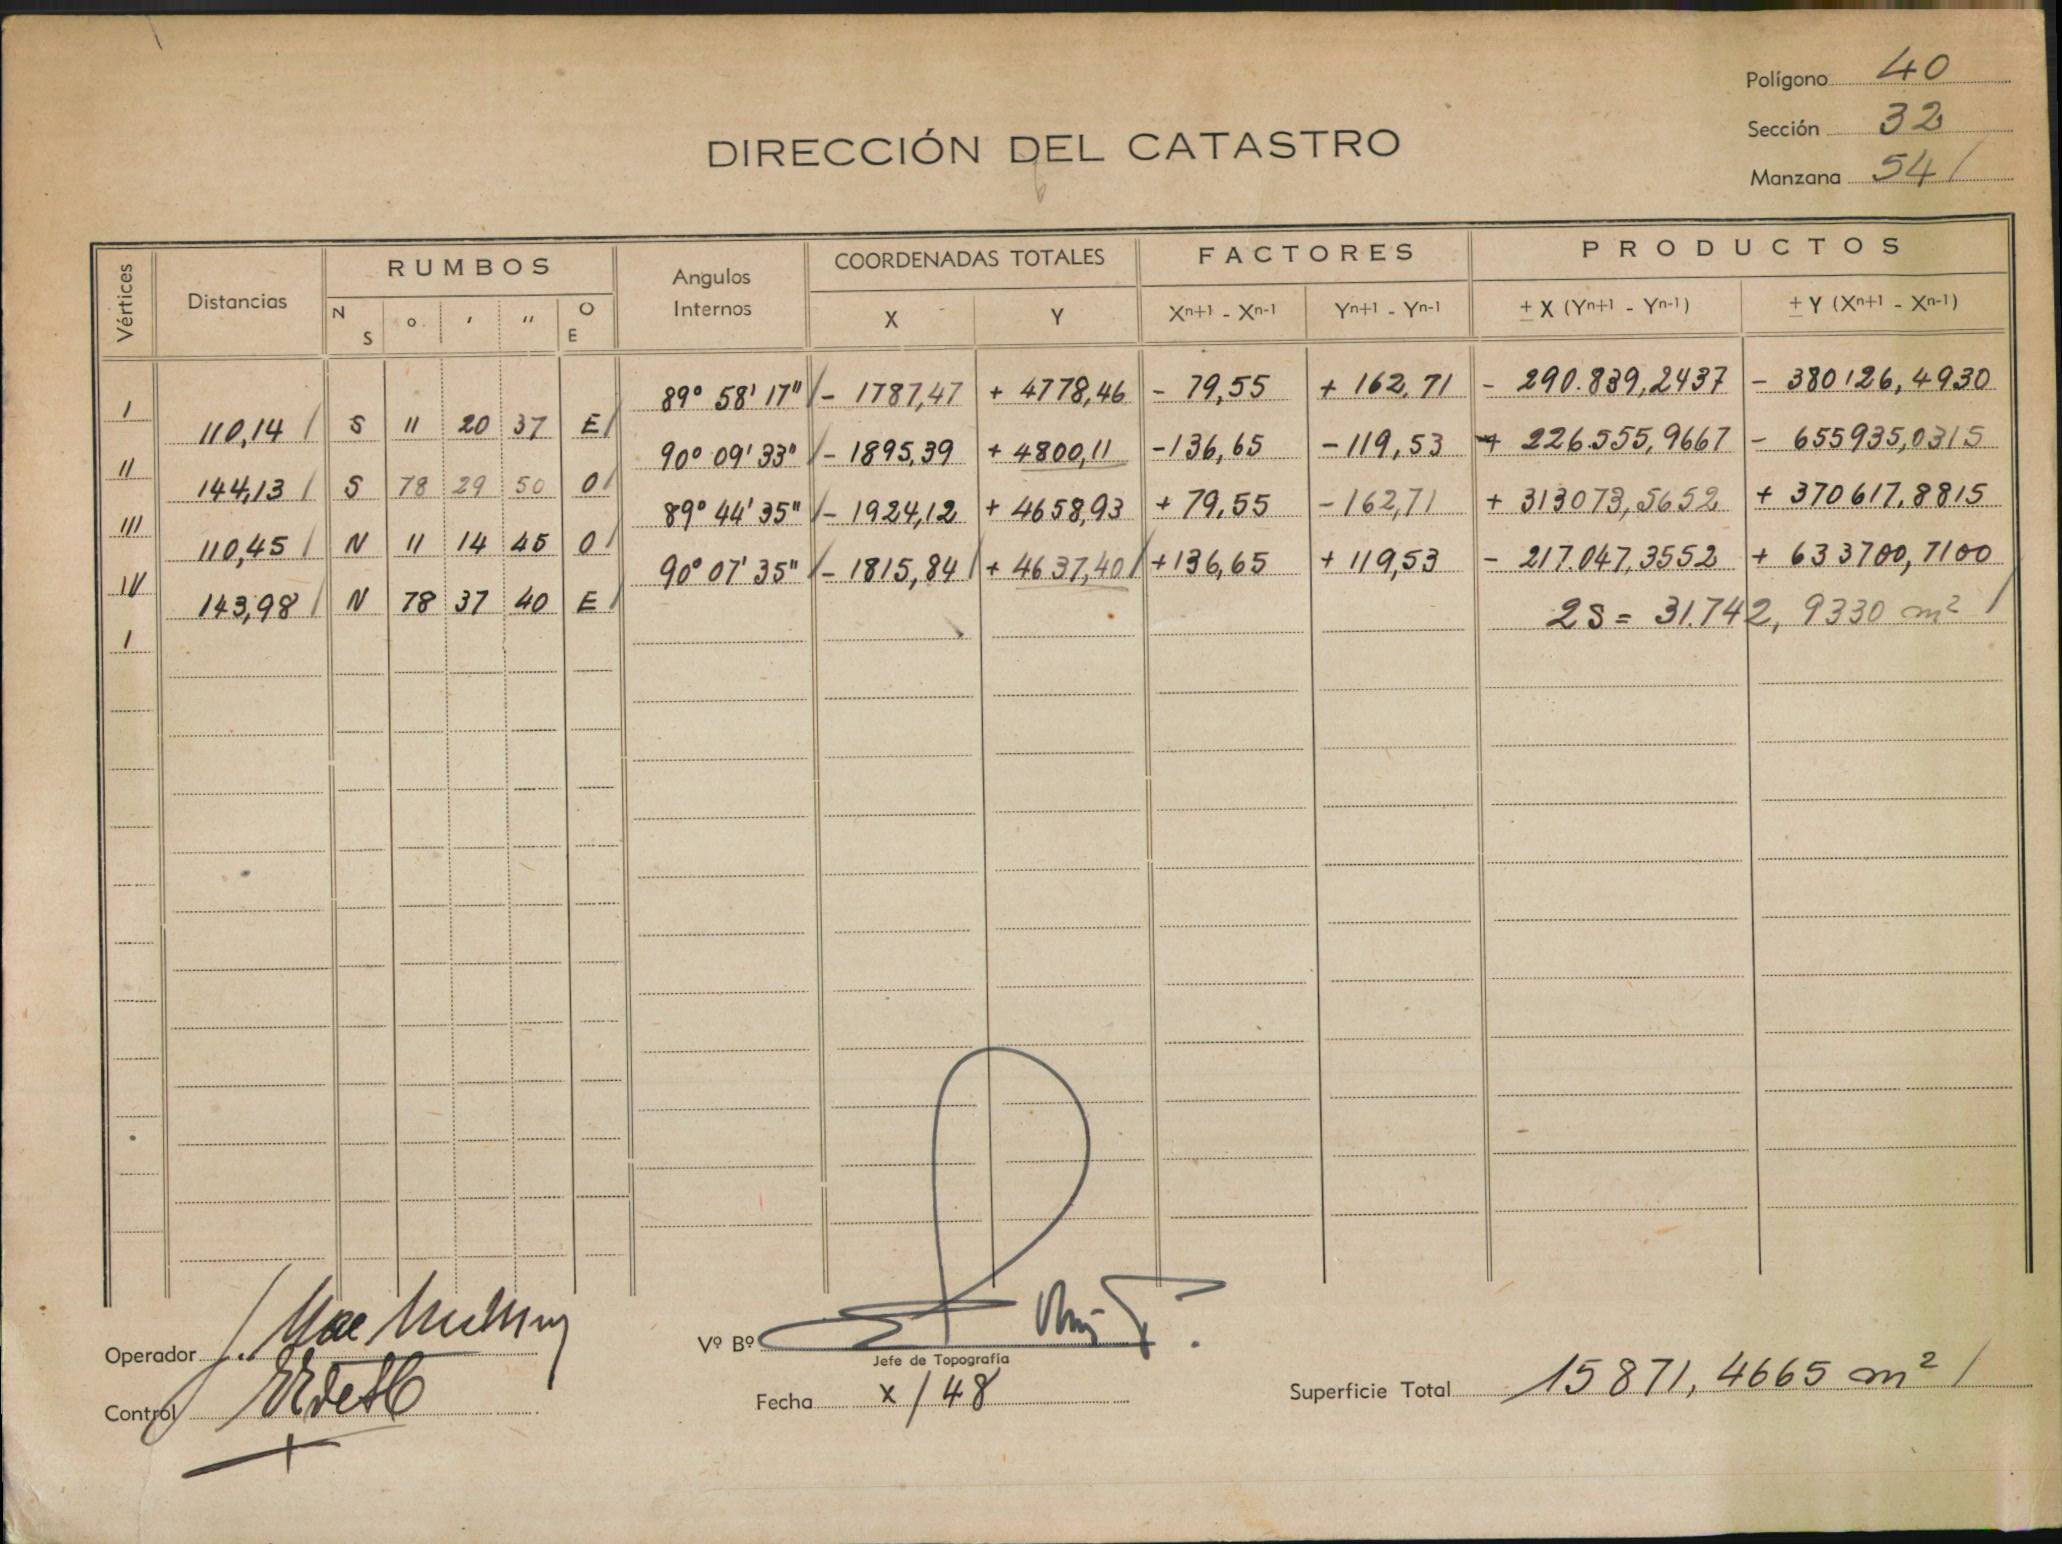 Polígono 40
Sección 32
Manzana 54 /
DIRECCIÓN DEL CATASTRO
Vértices Distancias RUMBOS Angulos Internos COORDENADAS TOTALES FACTORES PRODUCTOS
N S o ' '' O E X Y Xn+1 - Xn-1 Yn+1 - Yn-1 ± X (Yn+1 - Yn-1) ± Y (Xn+1 - Xn-1)
I 89° 58' 17" / - 1787,47 + 4778,46 - 79,55 + 162,71 - 290.839,2437 - 380126,4930
110,14 / S 11 20 37 E /
II 90° 09' 33" / - 1895,39 + 4800,11 -136,65 -119,53 + 226.555,9667 - 655935,0315
144,13 / S 78 29 50 O /
III 89° 44' 35" / - 1924,12 + 4658,93 + 79,55 -162,71 + 313073,5652 + 370617,8815
110,45 / N 11 14 45 O /
IV 90° 07' 35" / - 1815,84 / + 4637,40 / +136,65 + 119,53 - 217.047,3552 + 633700,7100
143,98 / N 78 37 40 E /
I 2S = 31.742,9330 m² /
Operador J. Mac
Control
Vº Bº
Jefe de Topografía
Fecha X/48
Superficie Total 15871,4665 m² /